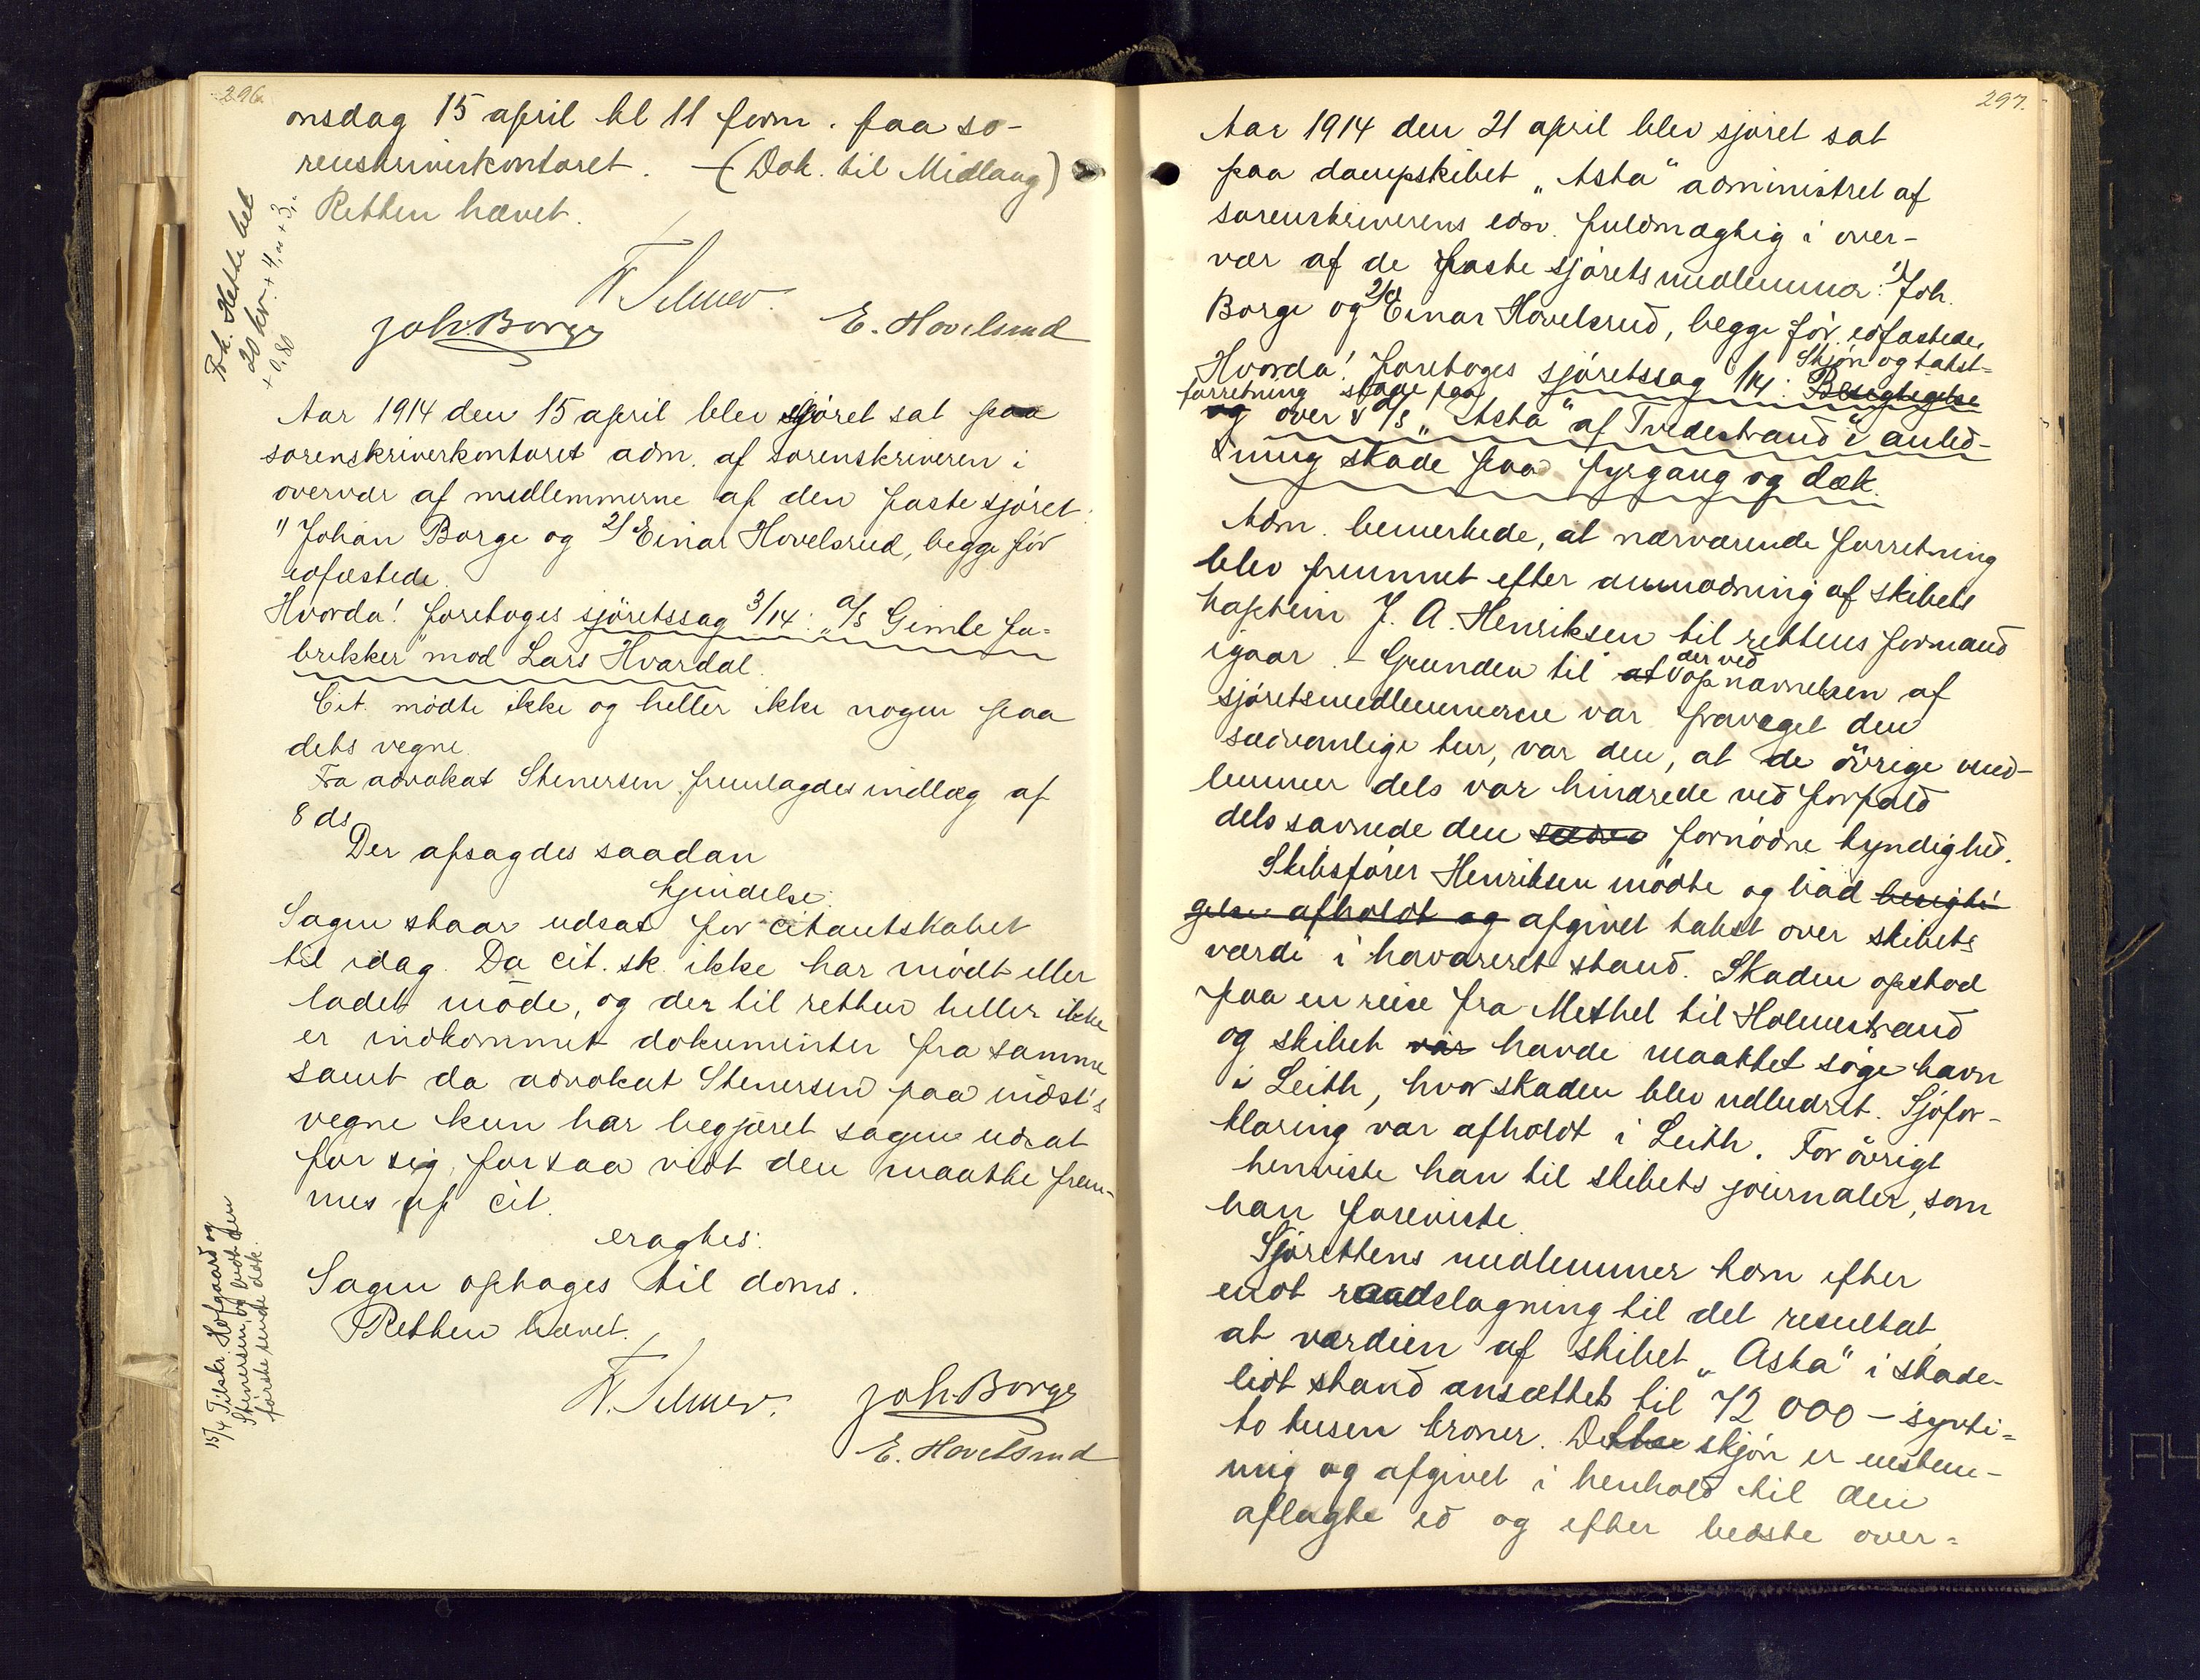 296.
onsdag 15 april kl 11 form. paa so-
renskriverkontoret. - (Dok. til Midlaug)
Retten hævet.
Joh. Borge
E. Hovelsrud
20 kr. + 4,00 + 3,-
+ 0,80
Aar 1914 den 15 april blev sjøret sat paa
sorenskriverkontoret adm. af sorenskriveren i
overvær af medlemmerne af den faste sjøret
1/ Johan Borge og 2/ Einar Hovelsrud, begge før
edfæstede.
Hvorda! foretoges sjøretssag 3/14: "a/s Gimle fa-
brikker" mod Lars Hvardal.
Cit. mødte ikke og heller ikke nogen paa
dets vegne.
Fra advokat Stenersen fremlagdes indlæg af
8 ds.
Der afsagdes saadan
kjendelse:
Sagen staar udsat for citantskabet
til idag. Da cit. sk. ikke har mødt eller
ladet møde, og der til retten heller ikke
er indkommet dokumenter fra samme
samt da advokat Stenersen paa indst's
vegne kun har begjæret sagen udsat
for sig, forsaa vidt den maatte frem-
mes af cit.
eragtes:
Sagen optages til doms.
Retten hævet.
Joh. Borge
E. Hovelsrud
15/4 Tilskr. Hofgaard og
Stenersen, og bedt den
første sende dok.
297.
Aar 1914 den 21 april blev sjøret sat
paa dampskibet "Asta" administret af
sorenskriverens edsv. fuldmægtig i over-
vær af de faste sjøretsmedlemmer: 1) Joh.
Borge og 2/ Einar Hovelsrud, begge før edfæstede.
Hvorda! foretoges sjøretssag 1/14: Besigtigelse Skjøn og takst-
forretning
og over d/s "Asta" af Tvedestrand i anled-
ning skade paa fyrgang og dæk.
Adm. bemerkede, at nærværende forretning
blev fremmet efter anmodning af skibets
kaptein J. A. Henriksen til rettens formand
igaar. - Grunden til at der ved opnævnelsen af
sjøretsmedlemmerne var fraveget den
sædvanlige tur, var den, at de øvrige med-
lemmer dels var hindrede ved forfald
dels savnede den fornødne kyndighed.
Skibsfører Henriksen mødte og bad besigti-
gelse afholdt og afgivet takst over skibets
værdi i havareret stand. Skaden opstod
paa en reise fra Methel til Holmestrand
og skibet var havde maattet søge havn
i Leith, hvor skaden blev udbedret. Sjøfor-
klaring var afholdt i Leith. Forøvrigt
henviste han til skibets journaler, som
han foreviste.
Sjørettens medlemmer kom efter
endt raadslagning til det resultat
at værdien af skibet "Asta" i skade-
lidt stand ansættes til 72 000 - sytti-
to tusen kroner. Dette skjøn er enstem-
mig og afgivet i henhold til den
aflagte ed og efter bedste over-